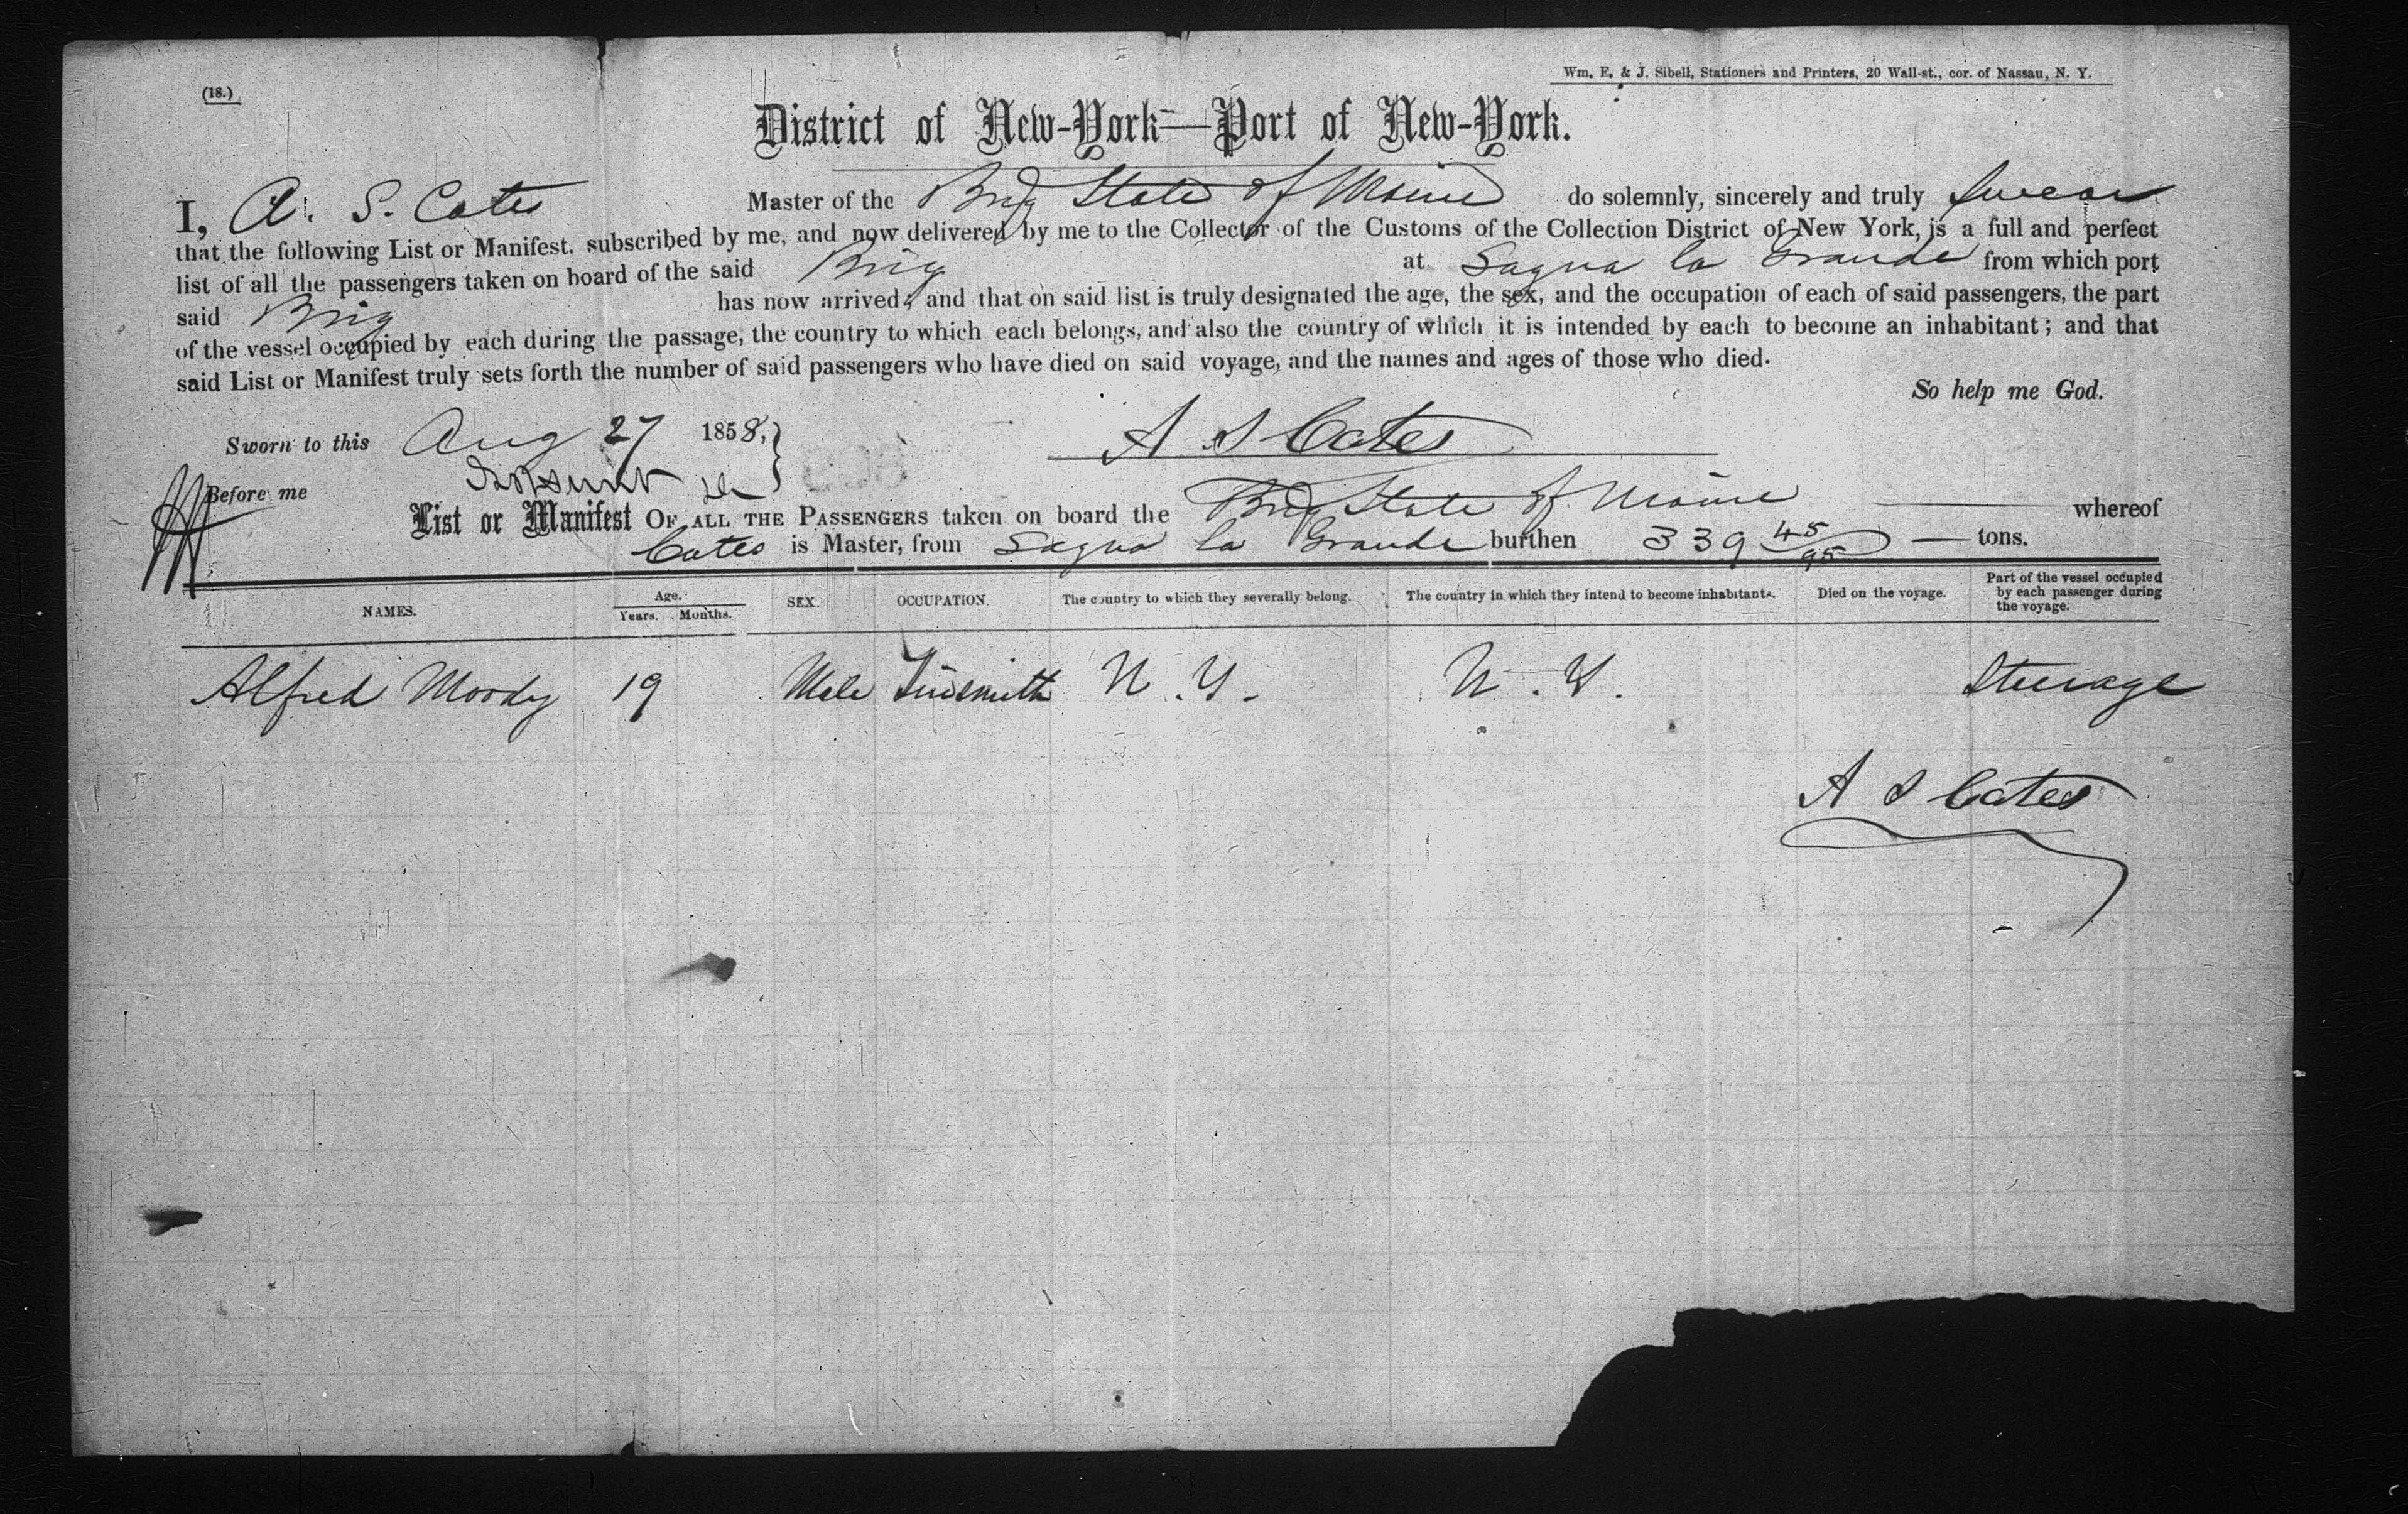 (18.)
Wm. E. & J. Sibell, Stationers and Printers, 20 Wall-st., cor. of Nassau, N. Y.
District of New-York—Port of New-York.
I, A. S. Cates Master of the Brig State of Maine do solemnly, sincerely and truly swear
that the following List or Manifest. subscribed by me, and now delivered by me to the Collector of the Customs of the Collection District of New York, is a full and perfect
list of all the passengers taken on board of the said Brig at Sagua la Grande from which port
said Brig has now arrived; and that on said list is truly designated the age, the sex, and the occupation of each of said passengers, the part
of the vessel occupied by each during the passage, the country to which each belongs, and also the country of which it is intended by each to become an inhabitant; and that
said List or Manifest truly sets forth the number of said passengers who have died on said voyage, and the names and ages of those who died.
So help me God.
Sworn to this Aug 27 1858, A S Cates
Before me
List or Manifest OF ALL THE PASSENGERS taken on board the Brig State of Maine whereof
Cates is Master, from Sagua la Grande burthen 339 45/95 tons.
NAMES. Age. Years. Months. SEX. OCCUPATION. The country to which they severally belong. The country in which they intend to become inhabitants. Died on the voyage. Part of the vessel occupied by each passenger during the voyage.
Alfred Moody 19 Male Tinsmith N. Y. N. Y. Steerage
A S Cates